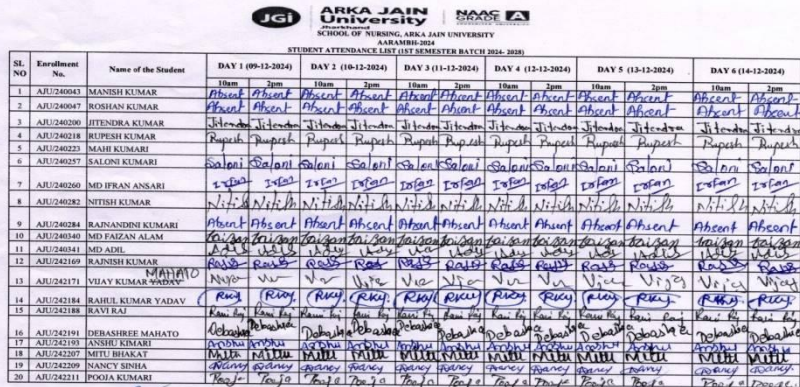 JGi ARKA JAIN University Jharkhand NAAC GRADE A
SCHOOL OF NURSING, ARKA JAIN UNIVERSITY
AARAMBH-2024
STUDENT ATTENDANCE LIST (1ST SEMESTER BATCH 2024- 2028)
SL NO Enrollment No. Name of the Student DAY 1 (09-12-2024) DAY 2 (10-12-2024) DAY 3 (11-12-2024) DAY 4 (12-12-2024) DAY 5 (13-12-2024) DAY 6 (14-12-2024)
10am 2pm 10am 2pm 10am 2pm 10am 2pm 10am 2pm 10am 2pm
1 AJU/240043 MANISH KUMAR Absent Absent Absent Absent Absent Absent Absent Absent Absent Absent Absent Absent
2 AJU/240047 ROSHAN KUMAR Absent Absent Absent Absent Absent Absent Absent Absent Absent Absent Absent Absent
3 AJU/240200 JITENDRA KUMAR Jitendra Jitendra Jitendra Jitendra Jitendra Jitendra Jitendra Jitendra Jitendra Jitendra Jitendra Jitendra
4 AJU/240218 RUPESH KUMAR Rupesh Rupesh Rupesh Rupesh Rupesh Rupesh Rupesh Rupesh Rupesh Rupesh Rupesh Rupesh
5 AJU/240223 MAHI KUMARI
6 AJU/240257 SALONI KUMARI Saloni Saloni Saloni Saloni Saloni Saloni Saloni Saloni Saloni Saloni Saloni Saloni
7 AJU/240260 MD IFRAN ANSARI Irfan Irfan Irfan Irfan Irfan Irfan Irfan Irfan Irfan Irfan Irfan Irfan
8 AJU/240282 NITISH KUMAR Nitish Nitish Nitish Nitish Nitish Nitish Nitish Nitish Nitish Nitish Nitish Nitish
9 AJU/240284 RAJNANDINI KUMARI Absent Absent Absent Absent Absent Absent Absent Absent Absent Absent Absent Absent
10 AJU/240340 MD FAIZAN ALAM faizan faizan faizan faizan faizan faizan faizan faizan faizan faizan faizan faizan
11 AJU/240341 MD ADIL
12 AJU/242169 RAJNISH KUMAR
MAHATO
13 AJU/242171 VIJAY KUMAR YADAV
14 AJU/242184 RAHUL KUMAR YADAV RKY RKY RKY RKY RKY RKY RKY RKY RKY RKY RKY RKY
15 AJU/242188 RAVI RAJ Ravi Raj Ravi Raj Ravi Raj Ravi Raj Ravi Raj Ravi Raj Ravi Raj Ravi Raj Ravi Raj Ravi Raj Ravi Raj Ravi Raj
16 AJU/242191 DEBASHREE MAHATO
17 AJU/242193 ANSHU KIMARI Anshu Anshu Anshu Anshu Anshu Anshu Anshu Anshu Anshu Anshu Anshu Anshu
18 AJU/242207 MITU BHAKAT Mitu Mitu Mitu Mitu Mitu Mitu Mitu Mitu Mitu Mitu Mitu Mitu
19 AJU/242209 NANCY SINHA Nancy Nancy Nancy Nancy Nancy Nancy Nancy Nancy Nancy Nancy Nancy Nancy
20 AJU/242211 POOJA KUMARI Pooja Pooja Pooja Pooja Pooja Pooja Pooja Pooja Pooja Pooja Pooja Pooja